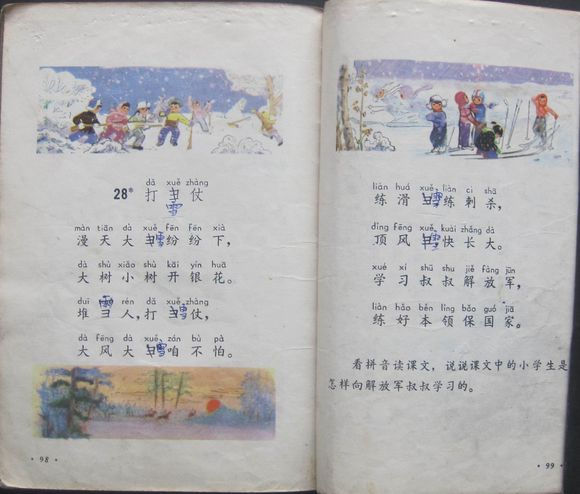 dǎ xuě zhàng
28* 打彐仗
雪
màn tiān dà xuě fēn fēn xià
漫天大彐雪纷纷下，
dà shù xiǎo shù kāi yín huā
大树小树开银花。
duī 雪 rén dǎ xuě zhàng
堆彐人，打彐雪仗，
dà fēng dà xuě zán bù pà
大风大彐雪咱不怕。
· 98 ·
liàn huá xuě liàn cì shā
练滑彐雪练刺杀，
dǐng fēng xuě kuài zhǎng dà
顶风彐雪快长大。
xué xí shū shu jiě fàng jūn
学习叔叔解放军，
liàn hǎo běn lǐng bǎo guó jiā
练好本领保国家。
看拼音读课文，说说课文中的小学生是
怎样向解放军叔叔学习的。
· 99 ·